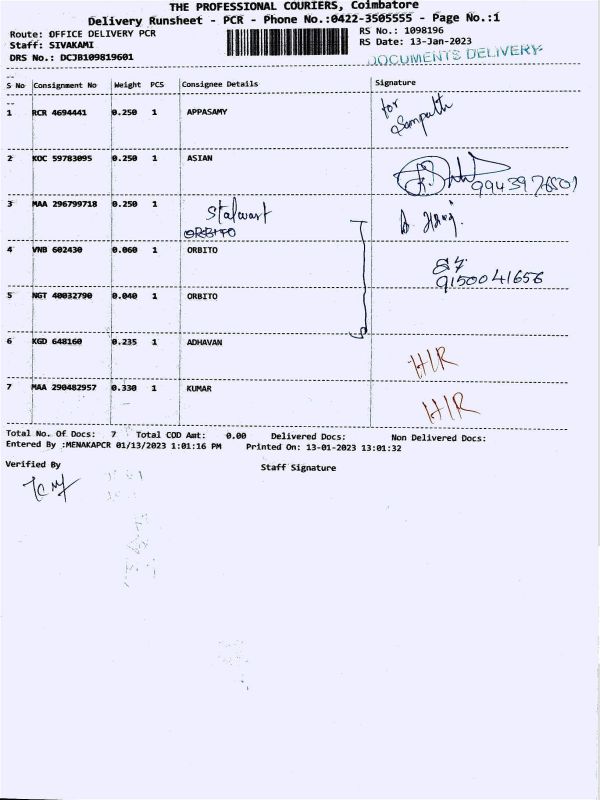 THE PROFESSIONAL COURIERS, Coimbatore
Delivery Runsheet - PCR - Phone No.:0422-3505555 - Page No.:1
Route: OFFICE DELIVERY PCR
Staff: SIVAKAMI
DRS No.: DCJB109819601
RS No.: 1098196
RS Date: 13-Jan-2023
DOCUMENTS DELIVERY
S No Consignment No Weight PCS Consignee Details Signature
1 RCR 4694441 0.250 1 APPASAMY for Sampath
2 KOC 59783095 0.250 1 ASIAN 9943976501
3 MAA 296799718 0.250 1 Stalwart
ORBITO
4 VNB 602430 0.060 1 ORBITO
9150041656
5 NGT 40032790 0.040 1 ORBITO
6 KGD 648160 0.235 1 ADHAVAN HIR
7 MAA 290482957 0.330 1 KUMAR HIR
Total No. Of Docs: 7 Total COD Amt: 0.00 Delivered Docs: Non Delivered Docs:
Entered By :MENAKAPCR 01/13/2023 1:01:16 PM Printed On: 13-01-2023 13:01:32
Verified By
Staff Signature